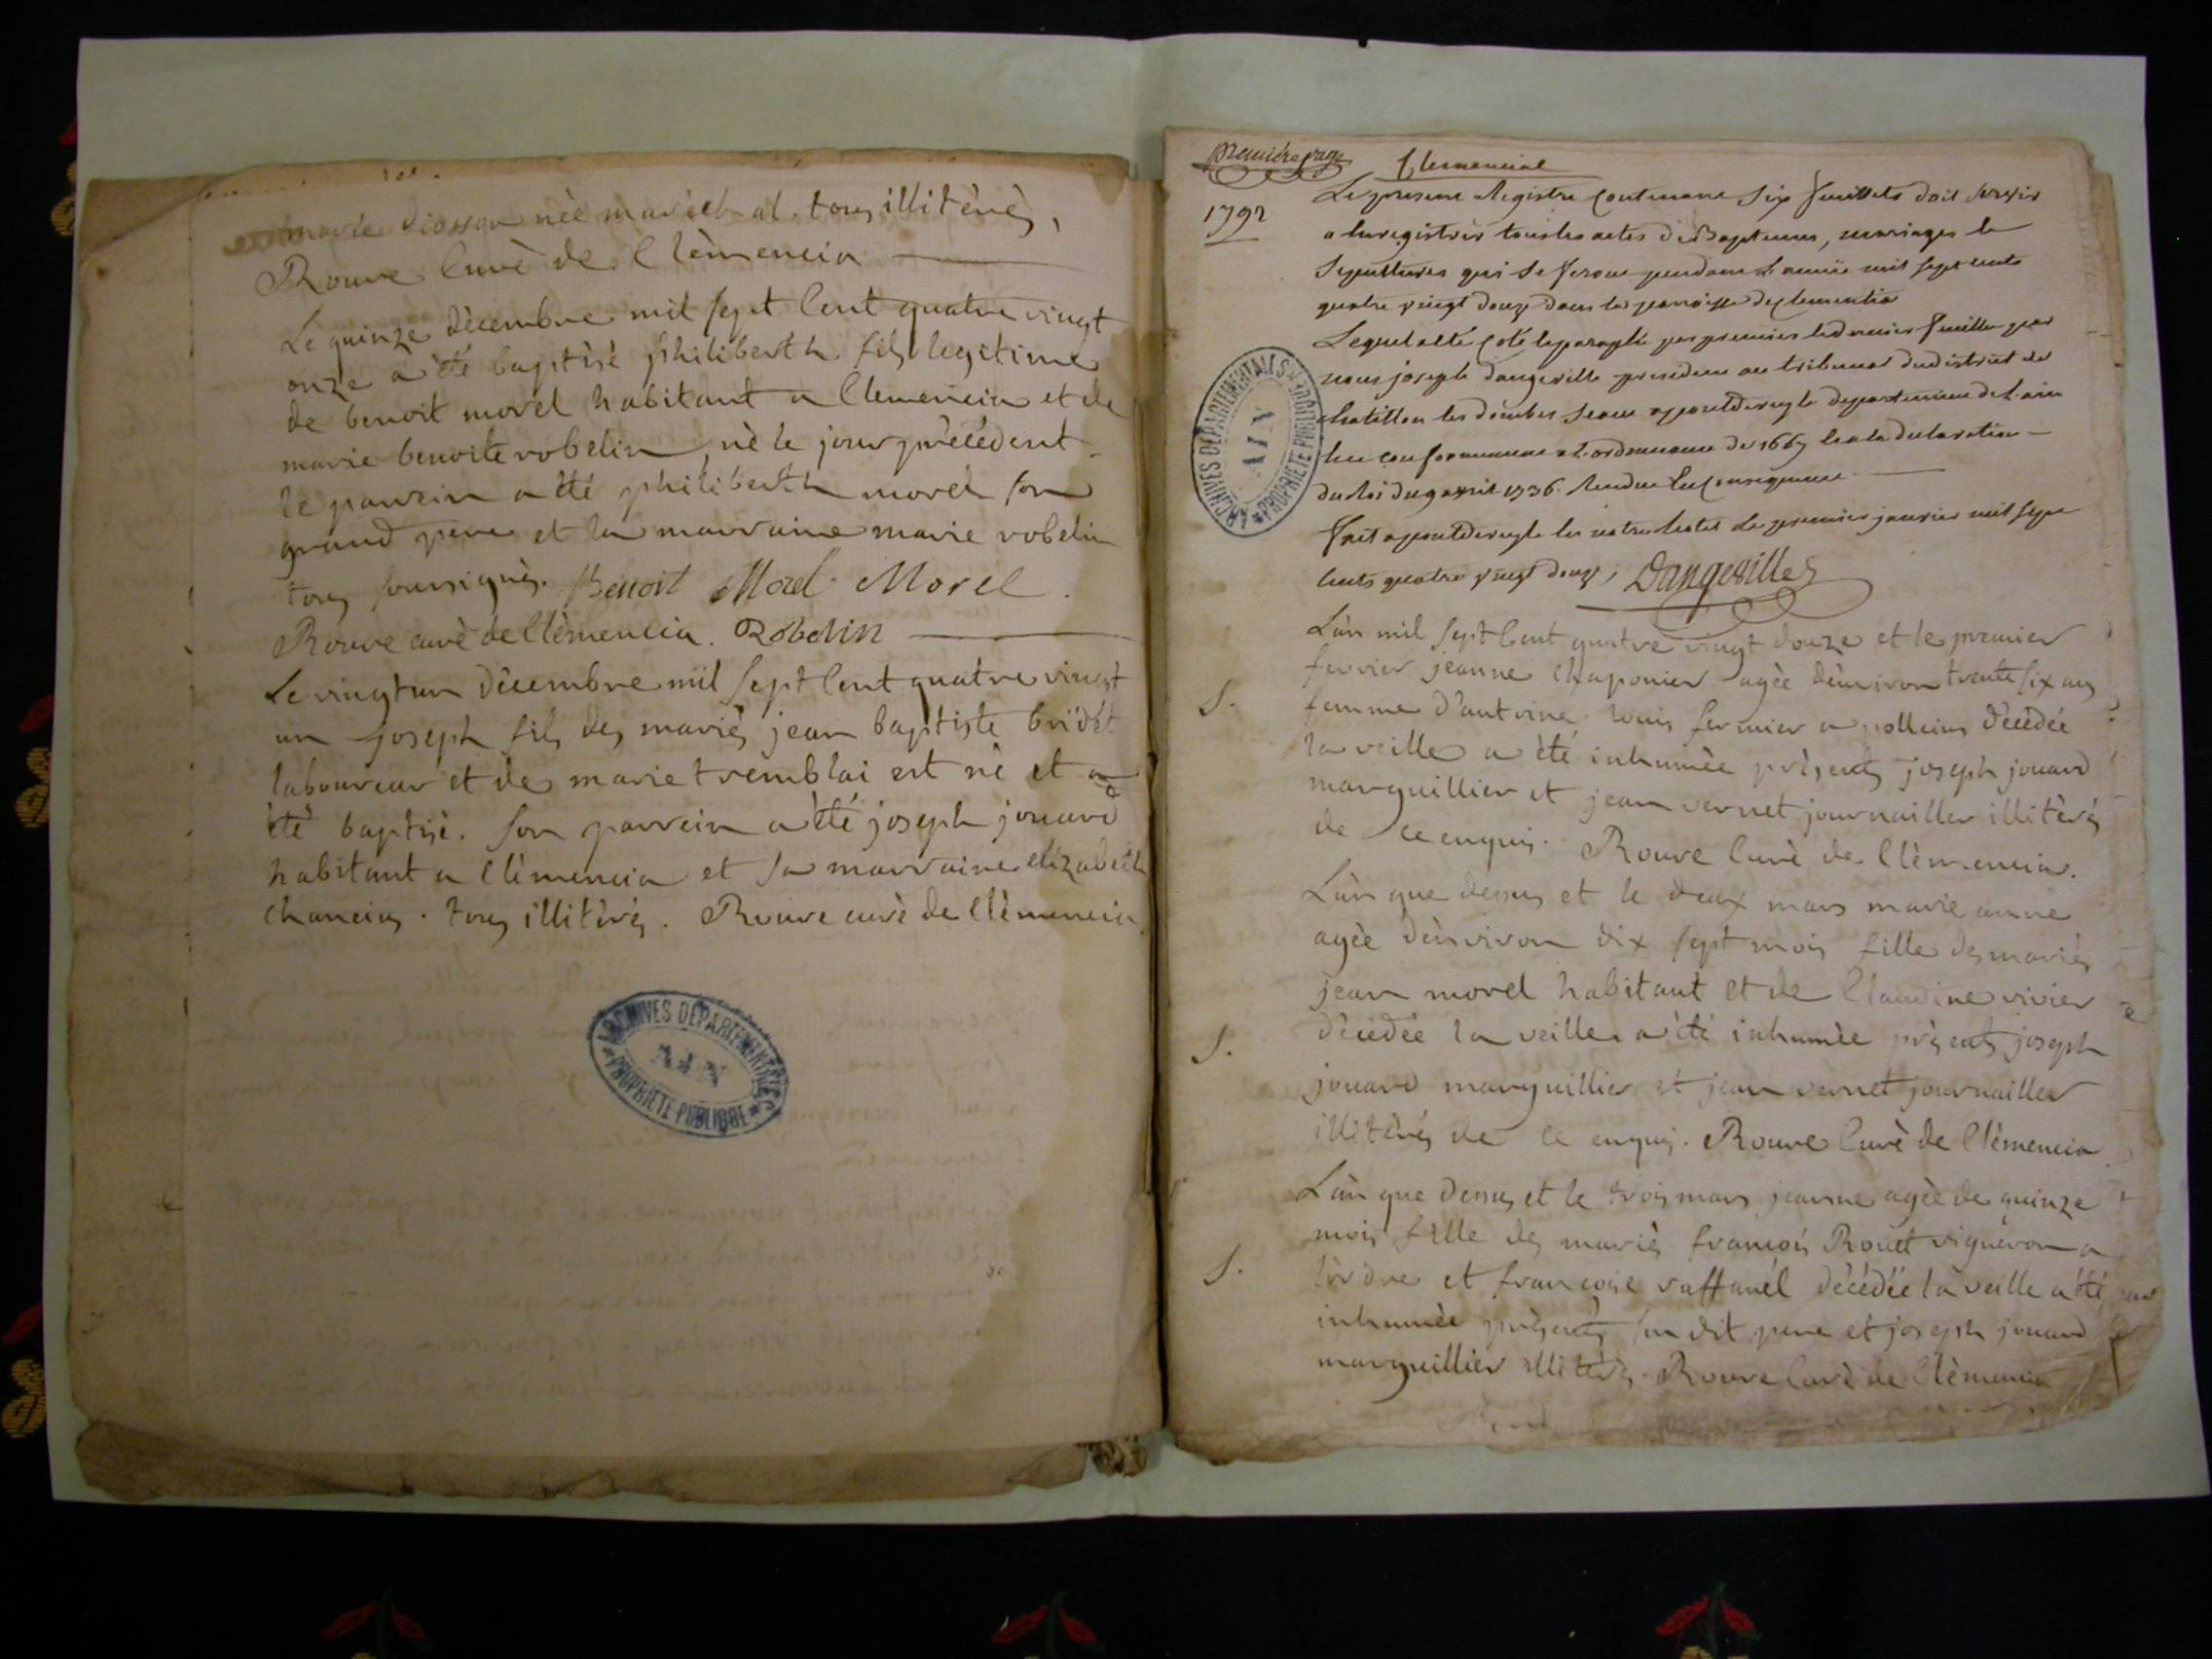 marie diosson née maréchal. tous illitèrés,
Rouve Curé de Clèmencia
Le quinze dècembre mil sept Cent quatre vingt
onze a été baptisé philiberth fils legitime
de benoit morel habitant a Clemencia et de
marie benoite robelin, né le jour précédent.
le parrein a été philiberth morel son
grand pere et la marraine marie robelin
tous soussignés. Benoit Morel Morel.
Rouve curé de Clèmencia. Robelin
Le vingt un dècembre mil sept Cent quatre vingt
un joseph fils des mariés jean baptiste bridet
laboureur et de marie tremblai est né et a
été baptisé. son parrein a été joseph jouard
habitant a Clèmencia et sa marraine elizabeth
Chancia. tous illitèrés. Rouve curé de Clèmencia
ARCHIVES DEPARTEMENTALES
AIN
PROPRIETE PUBLIQUE
premiére page
Clemenciat
1792
Le present Registre Contenant Six feuillets doit servir
a Enregistrér tous les actes de Baptemes, mariages Et
Sepultures qui Se feront pendant L'année mil sept cents
quatre vingt douze dans la parroisse de Clementia
Lequel a été Coté Et paraphé par premier Et dernier feuillet par
nous joseph dangeville president au tribunal du district de
chatillon les dombes Seant a pontdeveyle departement de L'ain
En conformement a L'ordonnance de 1667 Et a la declaration
du Roi du 9 avril 1736. Rendue En Consequence
fait a pontdeveyle En notre hotel Le premier janvier mil sept
Cents quatre vingt douze, Dangeville
ARCHIVES DEPARTEMENTALES
AIN
PROPRIETE PUBLIQUE
L'àn mil sept Cent quatre vingt douze et le premier
fevrier jeanne Chaponier agée d'environ trente six ans
S.
femme d'antoine louis fermier a polleins décédée
la veille a été inhumée présents joseph jouard
marguillier et jean vernet journailler illitèrés
de ce enquis. Rouve Curé de Clèmencia.
L'àn que dessus et le deux mars marie anne
agèe d'environ dix sept mois fille des mariés
jean morel habitant et de Claudine vivier
S.
décédée la veille a été inhumée présents joseph
jouard marguillier et jean vernet journailler
illitèrés de ce enquis. Rouve Curé de Clèmencia
L'àn que dessus et le trois mars jeanne agèe de quinze
mois fille des mariés françois Rouet vigneron a
S.
l'ordre et françoise raffanel décédée la veille a été
inhumée présents son dit pere et joseph jouard
marguillier illitèrés. Rouve Curé de Clèmencia